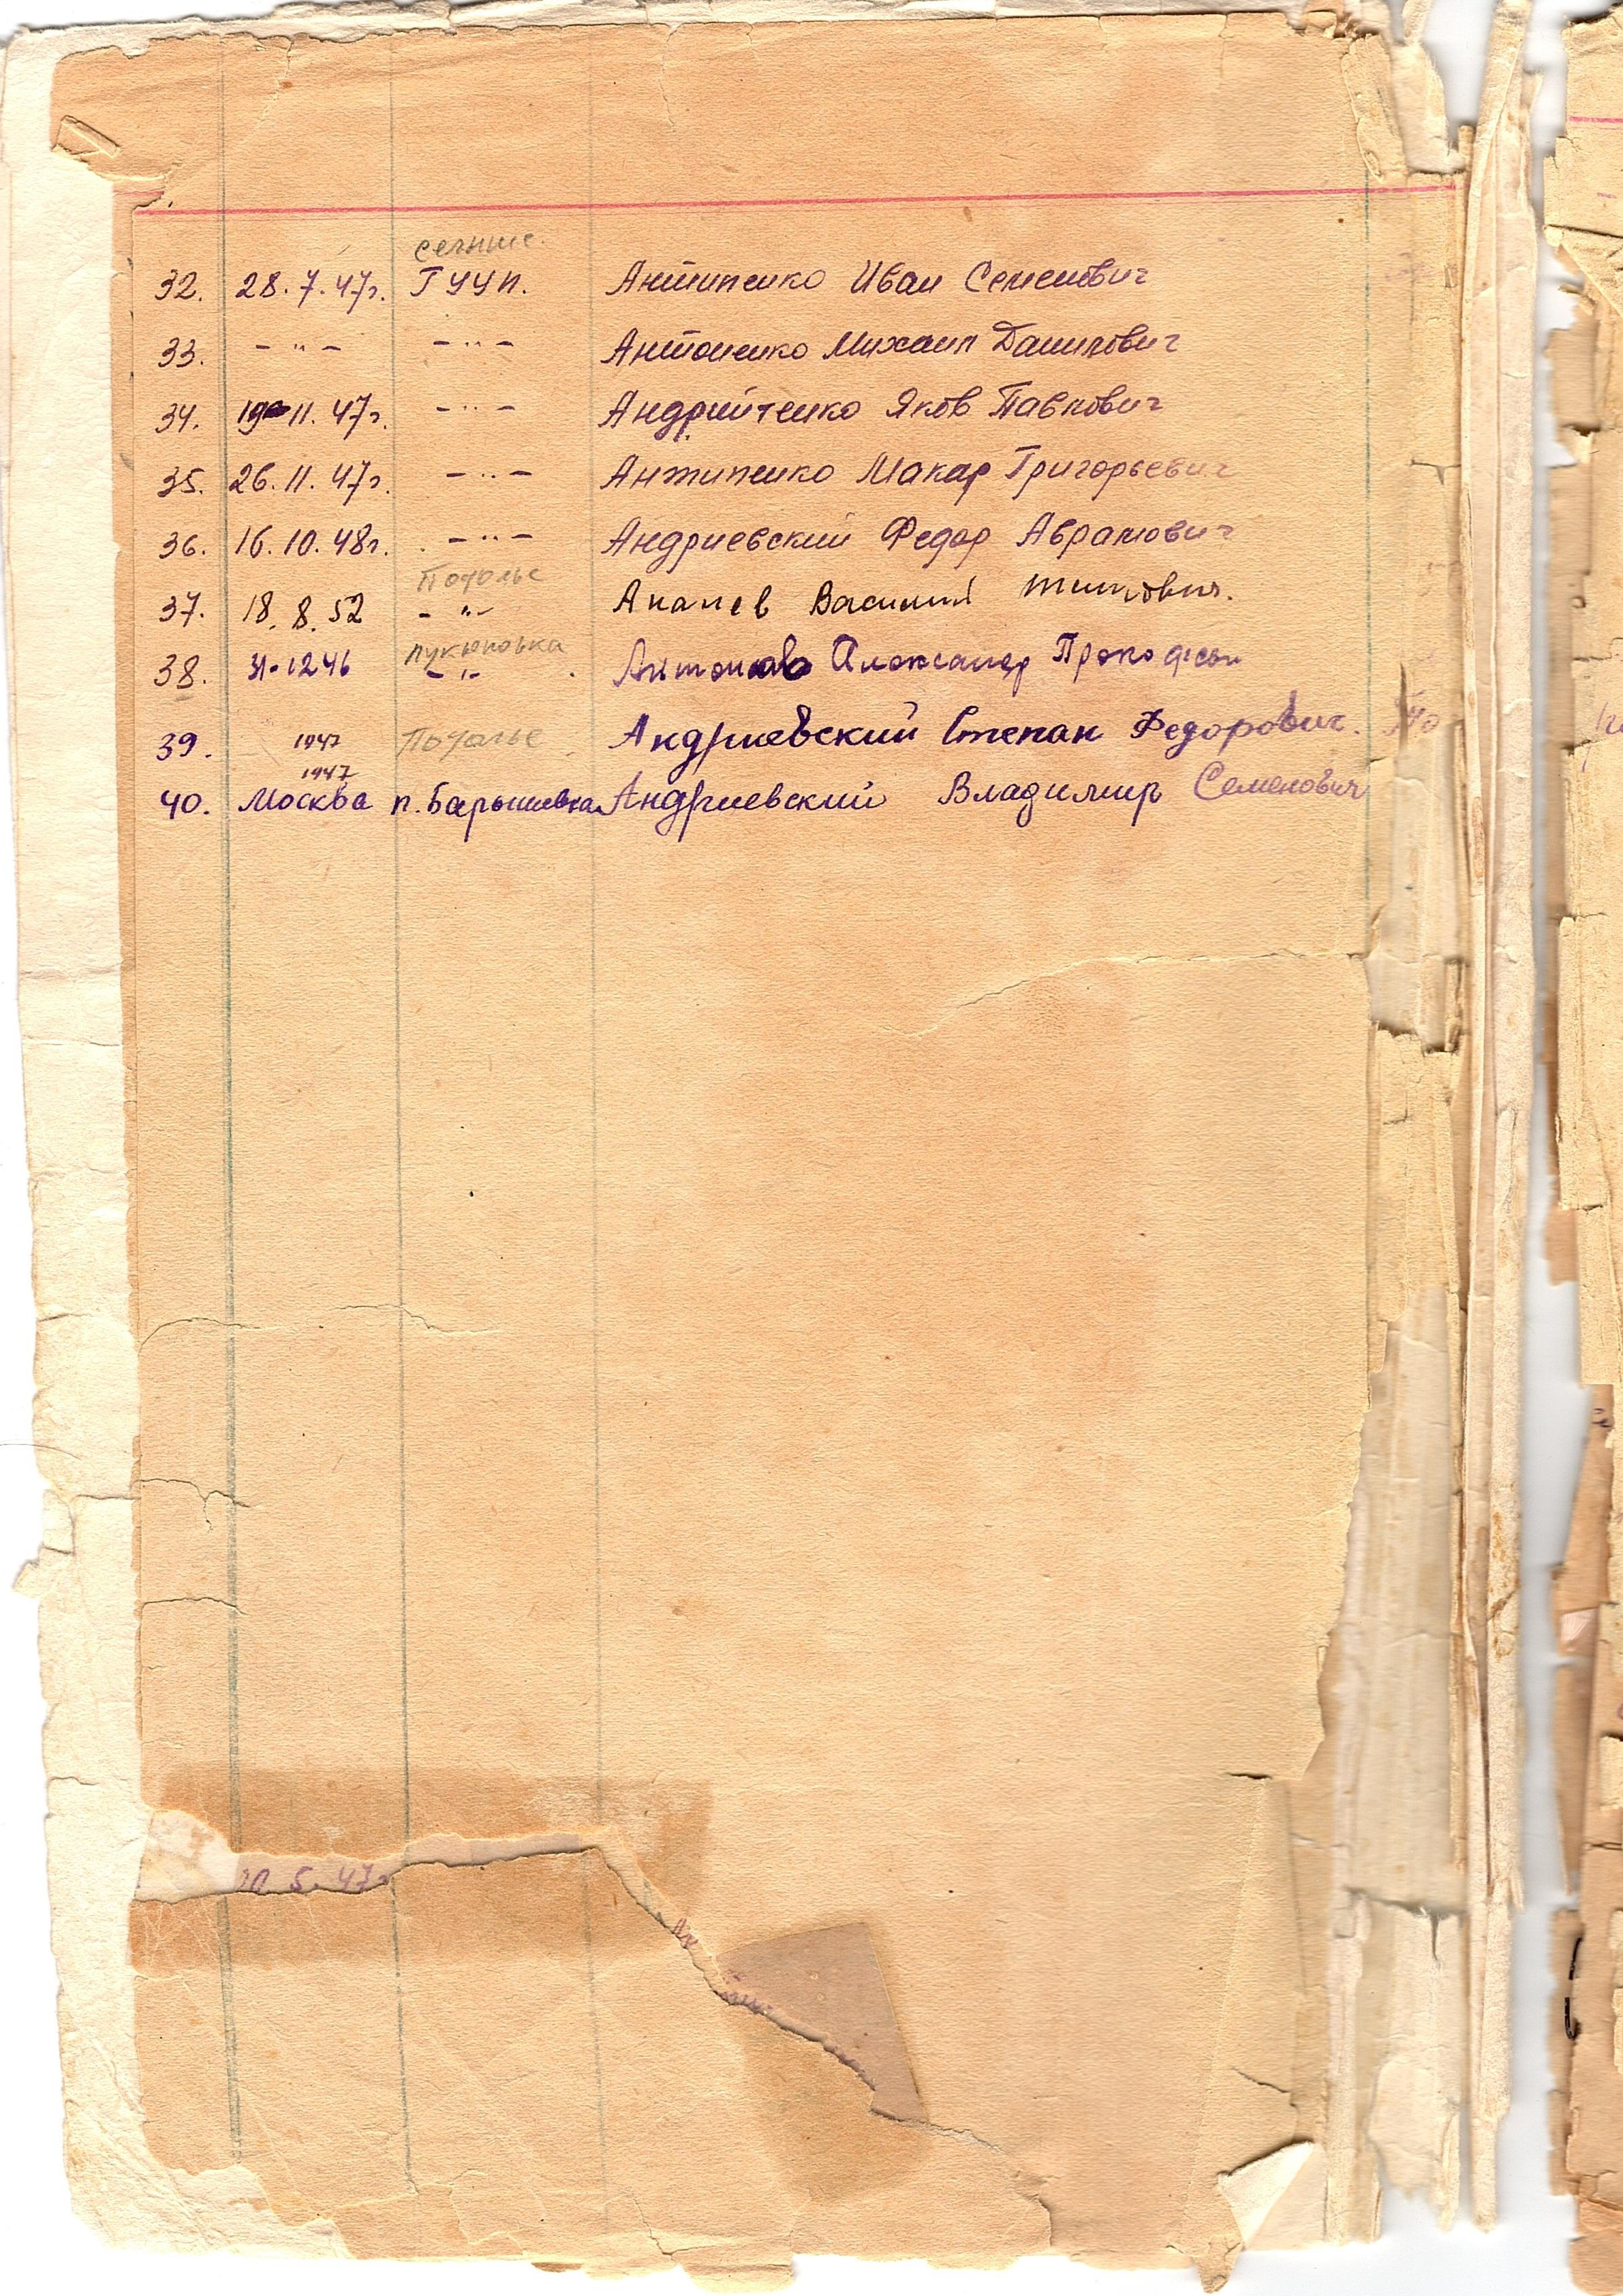 сечные.
32. 28.7.47г. ГУУП. Антипенко Иван Семенович
33. - " - - " - Антоненко Михаил Данилович
34. 19 11. 47г. - " - Андрийченко Яков Павлович
35. 26. 11. 47г. - " - Антипенко Макар Григорьевич
36. 16. 10. 48г. - " - Андриевский Федор Абрамович
Потолье
37. 18. 8. 52 - " - Ананев Василий Титович.
38. 31-1246 - " - Александр Прокофьев
39. 1947 Потолье Андриевский Степан Федорович. По
1947
40. Москва п. Барышевка Андриевский Владимир Семенович
20. 5. 47г